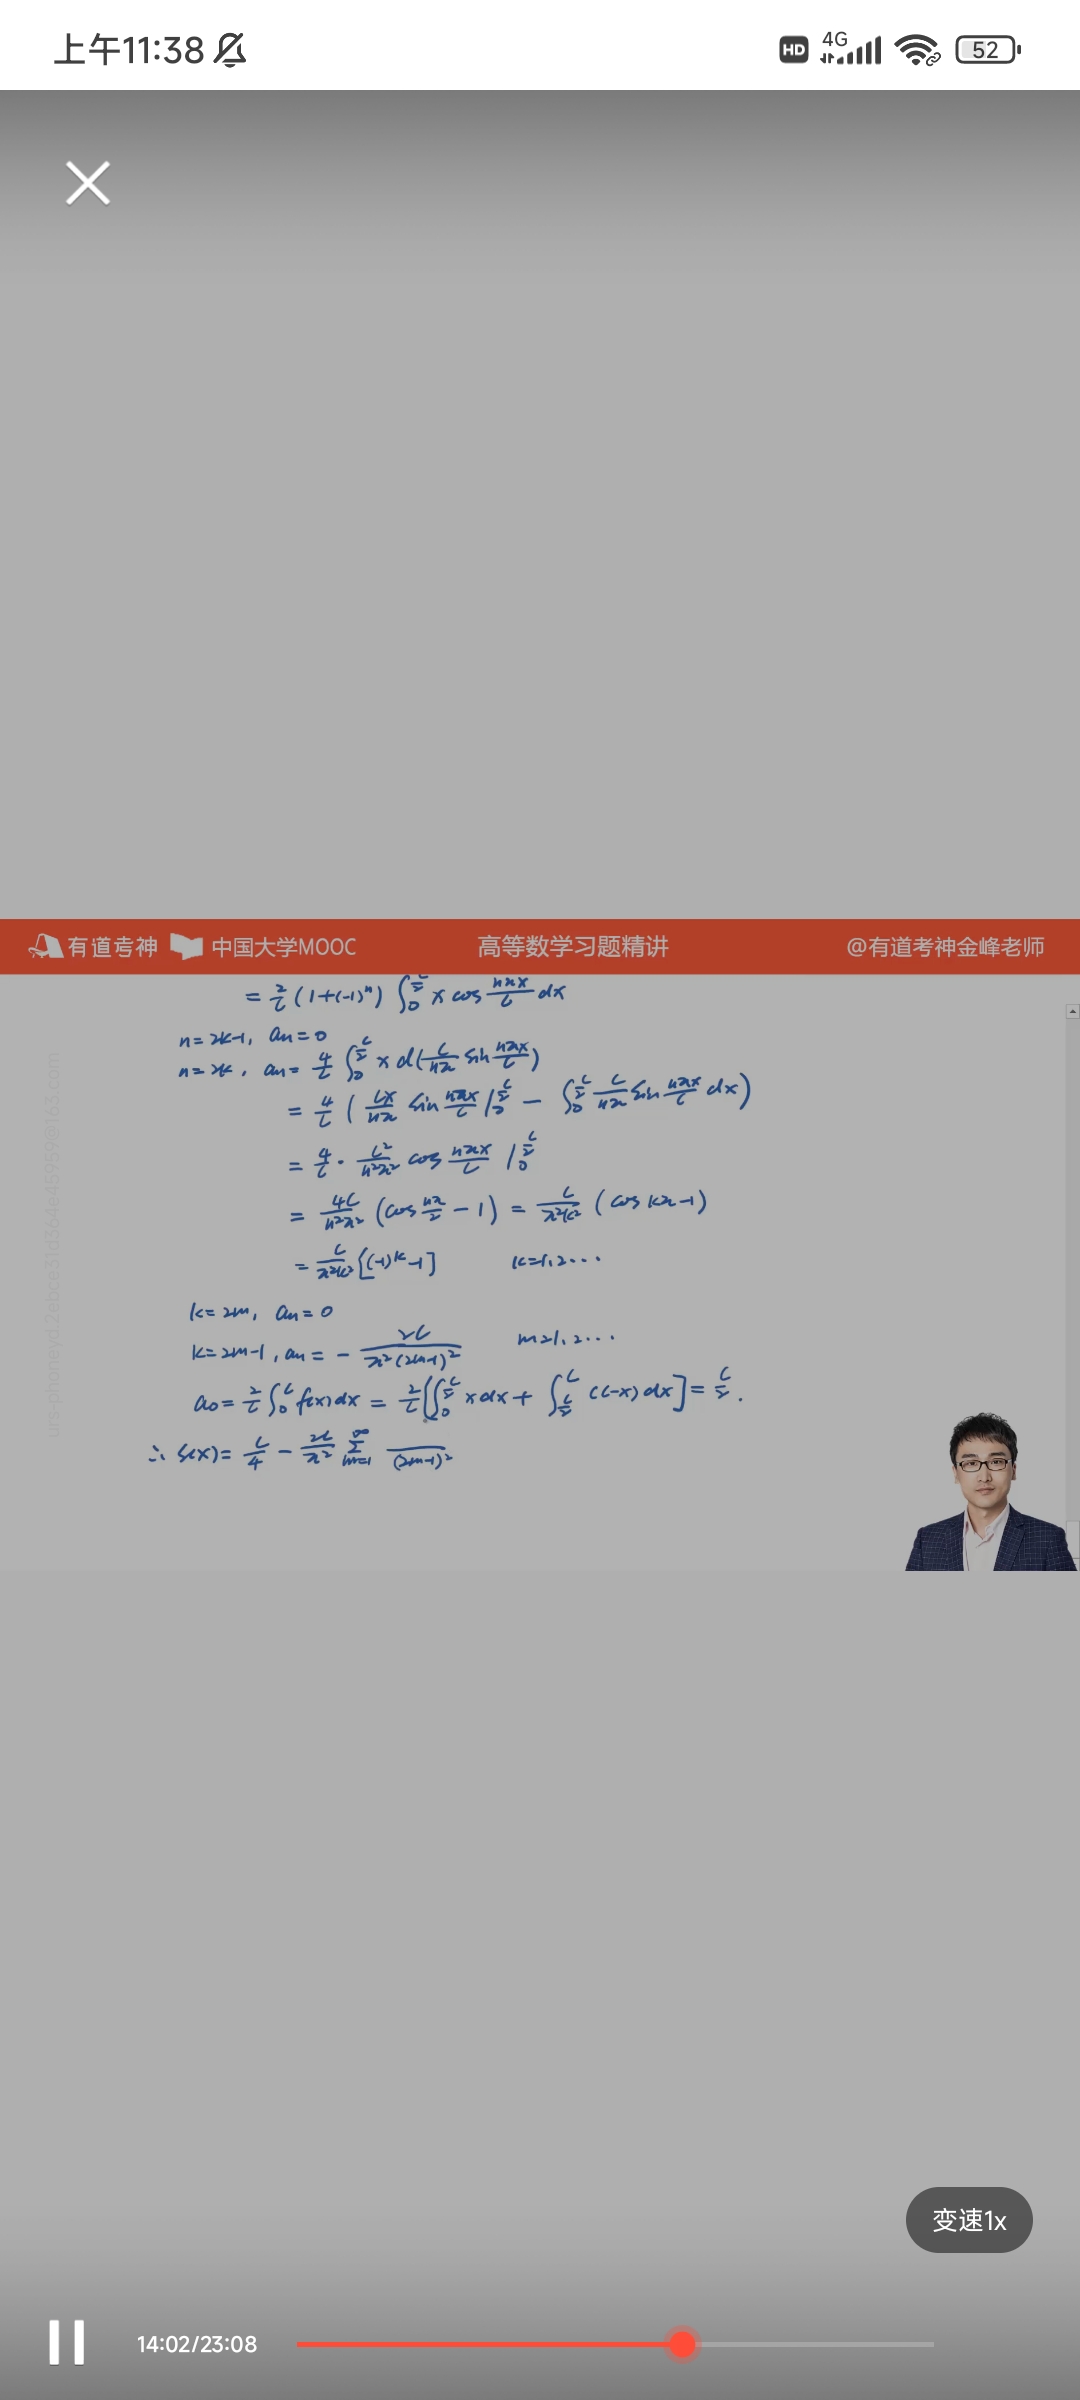 上午11:38 HD 4G 52
有道考神 中国大学MOOC 高等数学习题精讲 @有道考神金峰老师
= 2/l (1+(-1)^n) ∫_0^{l/2} x cos nπx/l dx
n=2k-1, an=0
n=2k, an= 4/l ∫_0^{l/2} x d(l/nπ sin nπx/l)
= 4/l ( lx/nπ sin nπx/l |_0^{l/2} - ∫_0^{l/2} l/nπ sin nπx/l dx)
= 4/l · l²/n²π² cos nπx/l |_0^{l/2}
= 4l/n²π² (cos nπ/2 - 1) = l/π²k² (cos kπ-1)
= l/π²k² [(-1)^k -1] k=1,2...
k=2m, an=0
k=2m-1, an= - 2l/π²(2m-1)² m=1,2...
a0= 2/l ∫_0^l f(x)dx = 2/l [∫_0^{l/2} x dx + ∫_{l/2}^l (l-x)dx] = l/2.
∴ S(x)= l/4 - 2l/π² Σ_{m=1}^∞ /(2m-1)²
变速1x
14:02/23:08